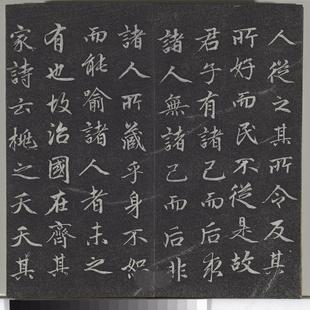 人從之其所令反其
所好而民不從是故
君子有諸己而后求
諸人無諸己而后非
諸人所藏乎身不如
而能喻諸人者未之
有也故治國在齊其
家詩云桃之夭夭其